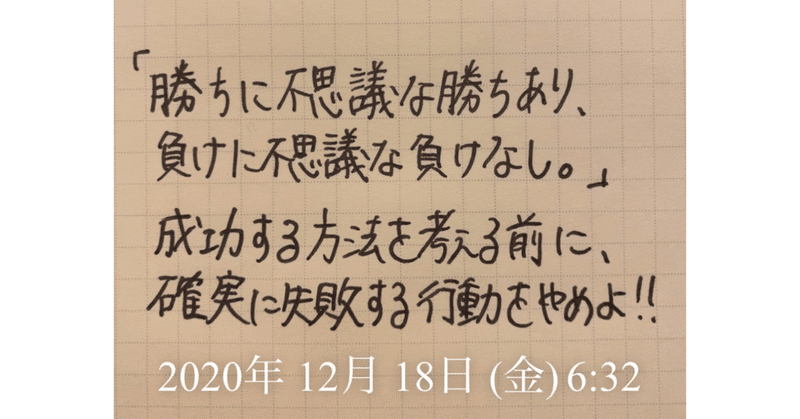 「勝ちに不思議な勝ちあり、
負けに不思議な負けなし。」
成功する方法を考える前に、
確実に失敗する行動をやめよ!!
2020年 12月 18日 (金) 6:32